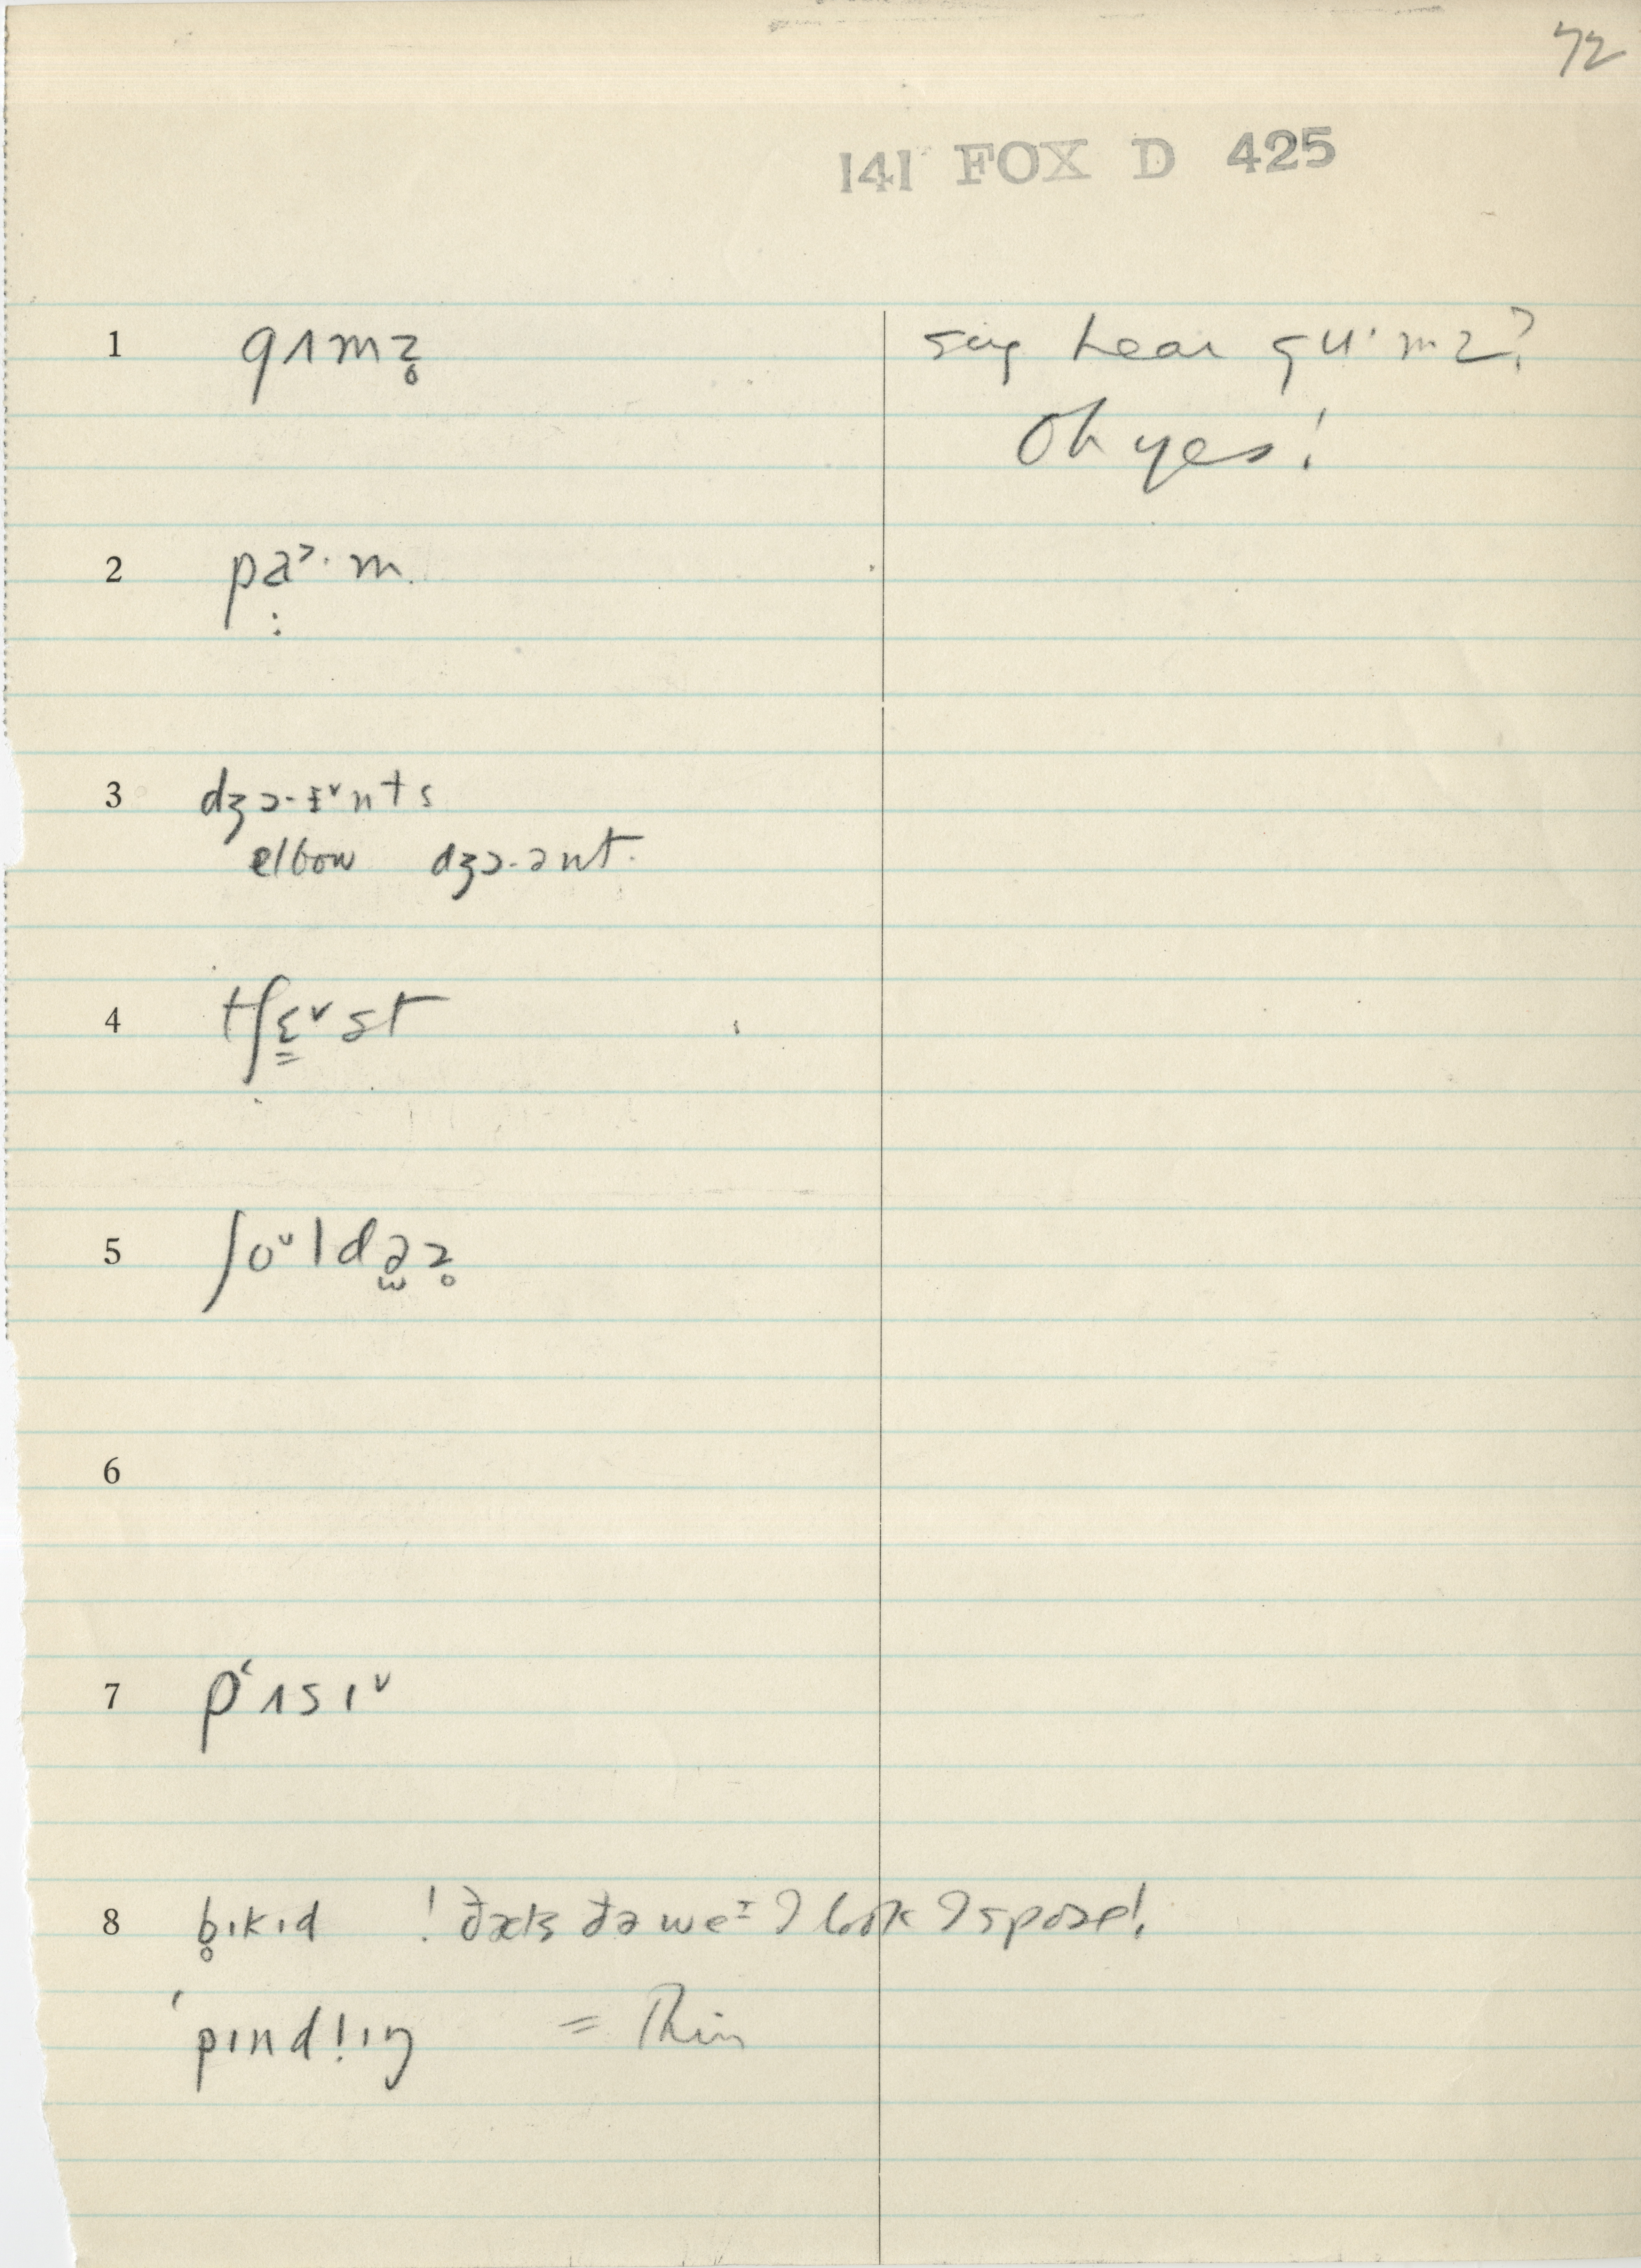 72
141 FOX D 425
1 gʌmz̥ say hear gu·mz?
Oh yes!
2 pa˃·m
3 dʒɔ-ɨ˅nts
elbow dʒɔ-ənt.
4 tʃɛ̳˅st
5 ʃo˅ldəz̥
6
7 pʻʌsɪ˅
8 b̥ɪkɪd ! ðæts ðə we I look I spose!
ˈpɪnd!ɪŋ = Thin